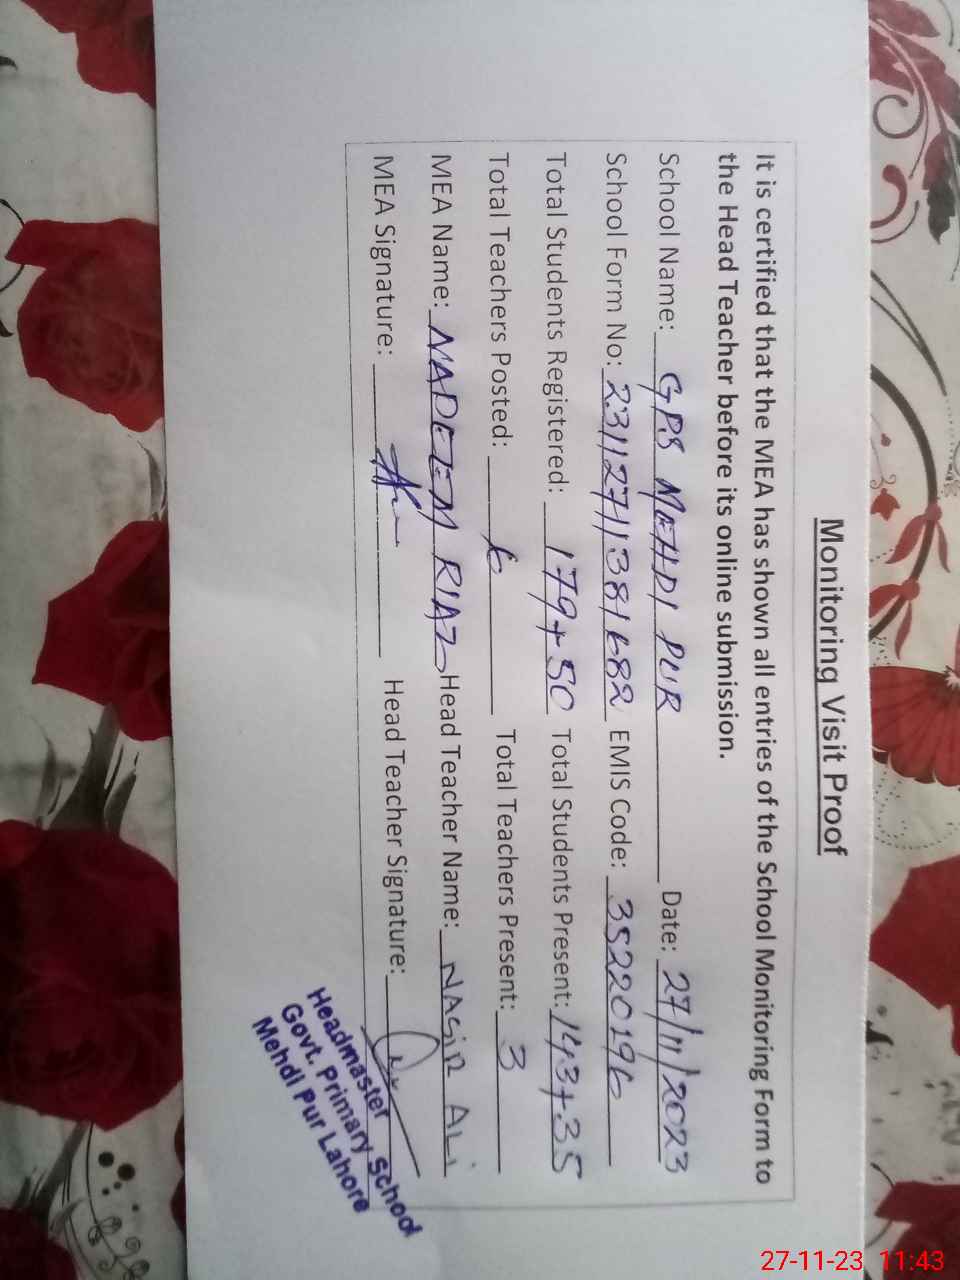 Monitoring Visit Proof
It is certified that the MEA has shown all entries of the School Monitoring Form to
the Head Teacher before its online submission.
School Name: GPS MEHDI PUR Date: 27/11/2023
School Form No: 231127111381682 EMIS Code: 35220196
Total Students Registered: 179+50 Total Students Present: 143+35
Total Teachers Posted: 6 Total Teachers Present: 3
MEA Name: NADEEM RIAZ Head Teacher Name: NASIR ALI
MEA Signature: Head Teacher Signature:
Headmaster
Govt. Primary School
Mehdi Pur Lahore
27-11-23 11:43